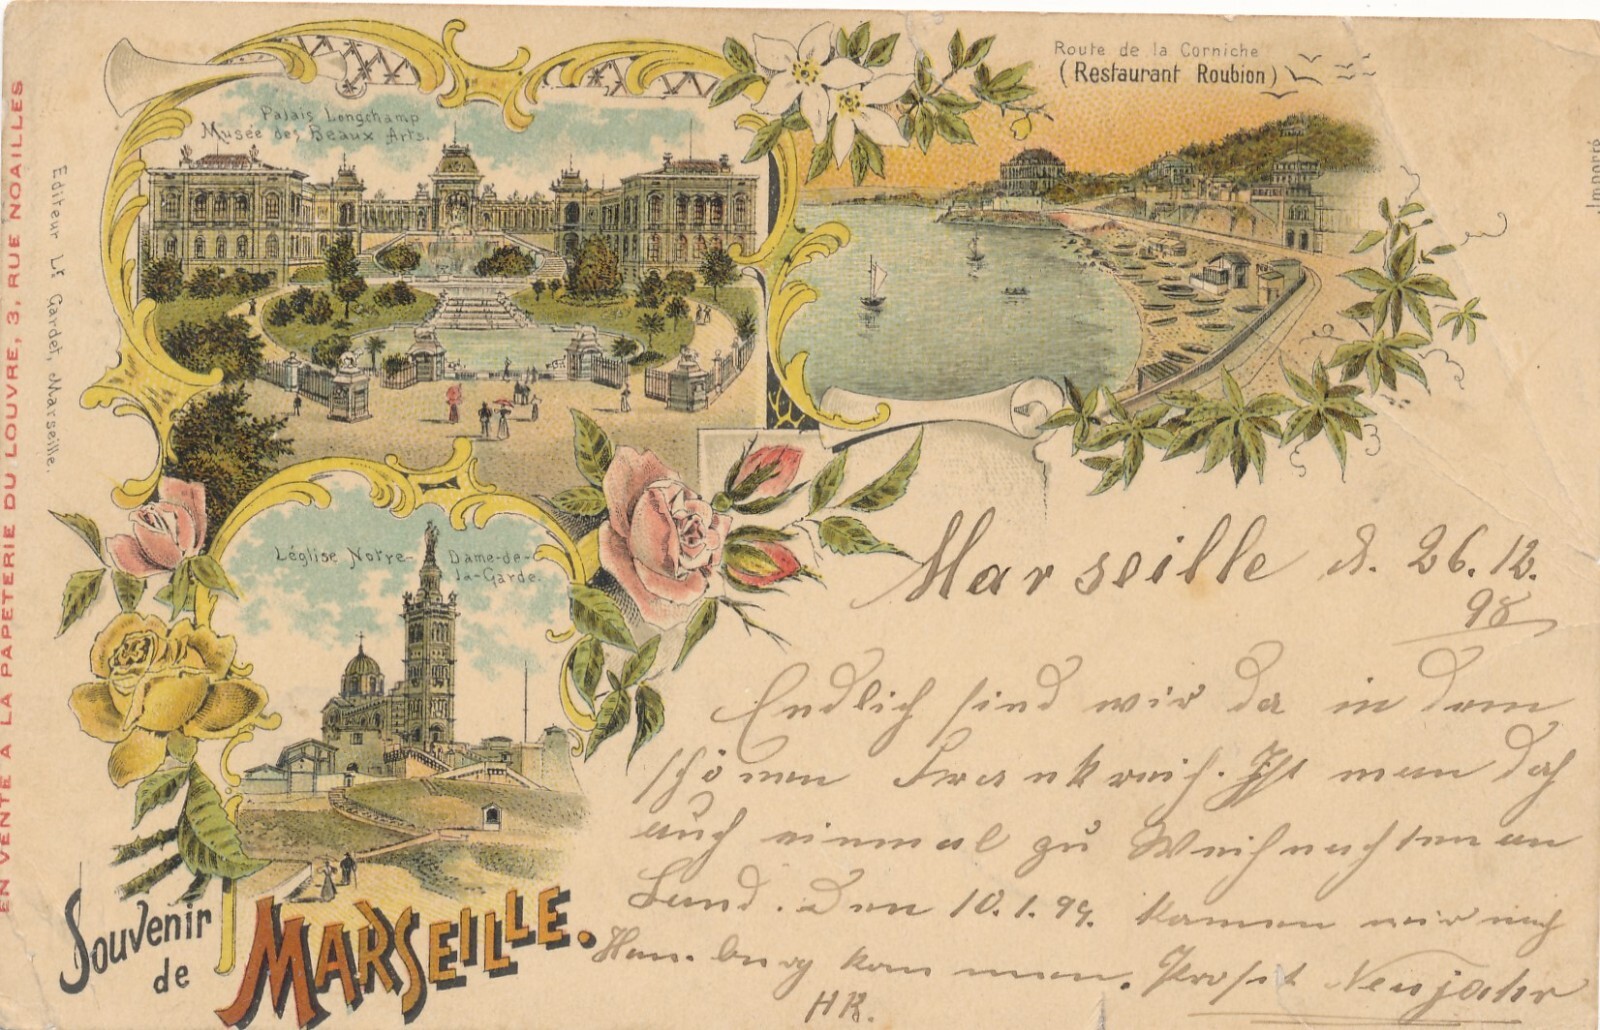 Palais Longchamp
Musée des Beaux Arts.
Route de la Corniche
(Restaurant Roubion)
Importé
EN VENTE A LA PAPETERIE DU LOUVRE, 3, RUE NOAILLES
Editeur Lt Gardet, Marseille.
L'église Notre-Dame-de-
la-Garde.
Souvenir
de
MARSEILLE.
Marseille d. 26.12.
98
Endlich sind wir da in dem
schönen Frankreich. Ist man doch
auch einmal zu Weihnachten an
Land. Den 10.1.99. kommen wir nach
Hamburg kommen. Prosit Neujahr
HR.